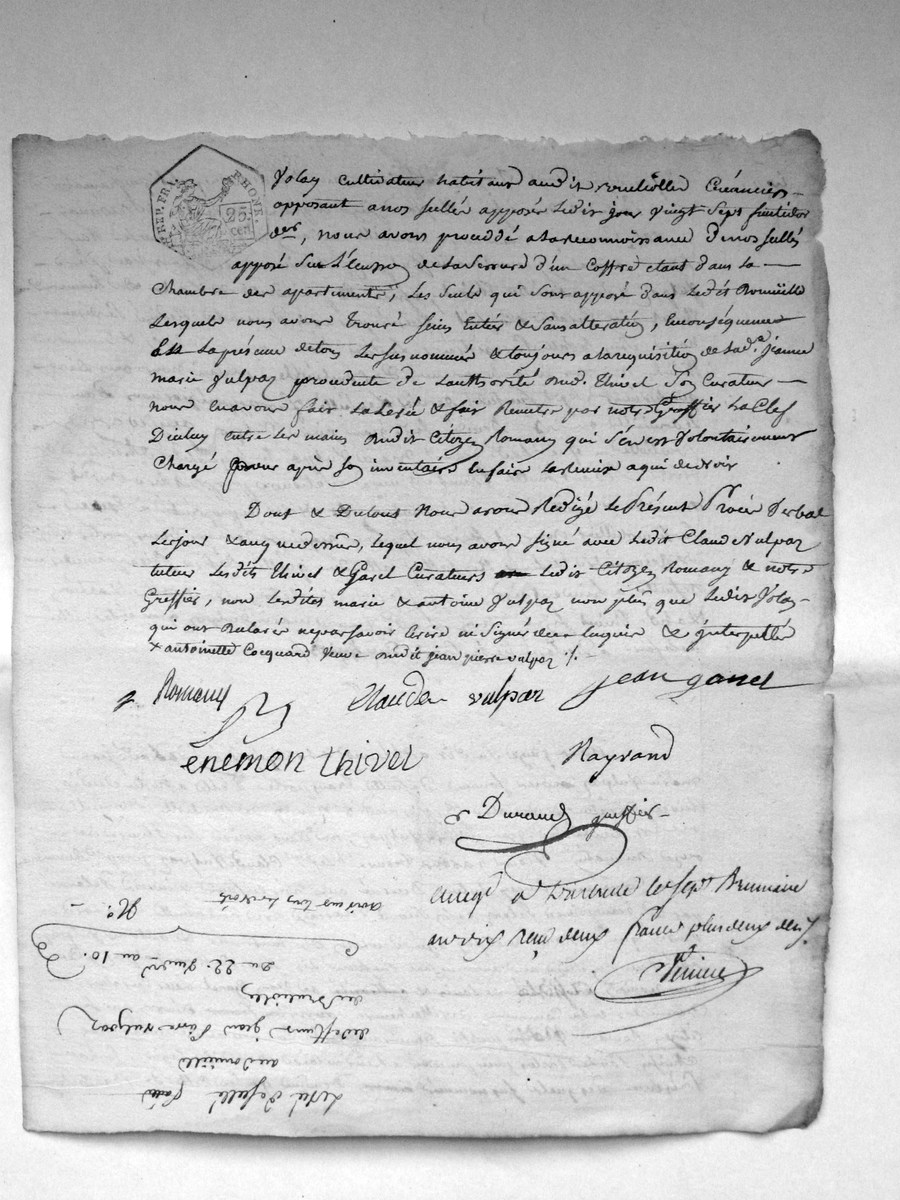 REP. FRA. RHONE.
25. CEN.
Volay cultivateur habitant audit creancier
opposant a nos scellés apposés ledit jour vingt sept fructidor
der, nous avons procédé a la reconnoissance de nos scellés
apposé sur l'ecusson de la serrure d'un coffre etant dans la
chambre des apartiments, les seuls qui sont apposé dans ledit domicille
lesquels nous avons trouvé seins entiés & sans alteration, en conséquence
la présence de tous les sus nommés & toujours a la requisition de lad.e jeanne
marie vulpaz procedente de l'authorité dud. thivel son curateur
nous en avons fait la levée & fait remettre par notre greffier la clef
d'icelui entre les mains dudit citoyen Romany qui s'en est volontairement
chargé pour après son inventaire en faire la remise a qui de droit
Dont & du tout nous avons redigé le présent procès verbal
les jour & an que dessus, lequel nous avons signé avec ledit Claude vulpaz
tuteur lesdits thivel & garel curateurs ledit citoyen Romany & notre
greffier, non lesdites marie & antoine vulpaz non plus que ledit volay
qui ont declaré ne pas savoir ecrire ni signer de ce enquis & interpellés
& antoinette Cocquard veuve dudit jean pierre vulpaz ./.
Romany
Claude vulpaz
jean garel
enemon thivel
Raynand
Durand greffier
enreg. a l'arbrele le sept Brumaire
an dix reçu deux francs plus deux deci.
Levée de scellé
au domicille
de deffunt jean pierre vulpaz
du 22. an 10.